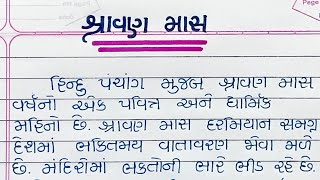 શ્રાવણ માસ
હિન્દુ પંચાંગ મુજબ શ્રાવણ માસ
વર્ષનો એક પવિત્ર અને ધાર્મિક
મહિનો છે. શ્રાવણ માસ દરમિયાન સમગ્ર
દેશમાં ભક્તિમય વાતાવરણ જોવા મળે
છે. મંદિરોમાં ભક્તોની ભારે ભીડ રહે છે.